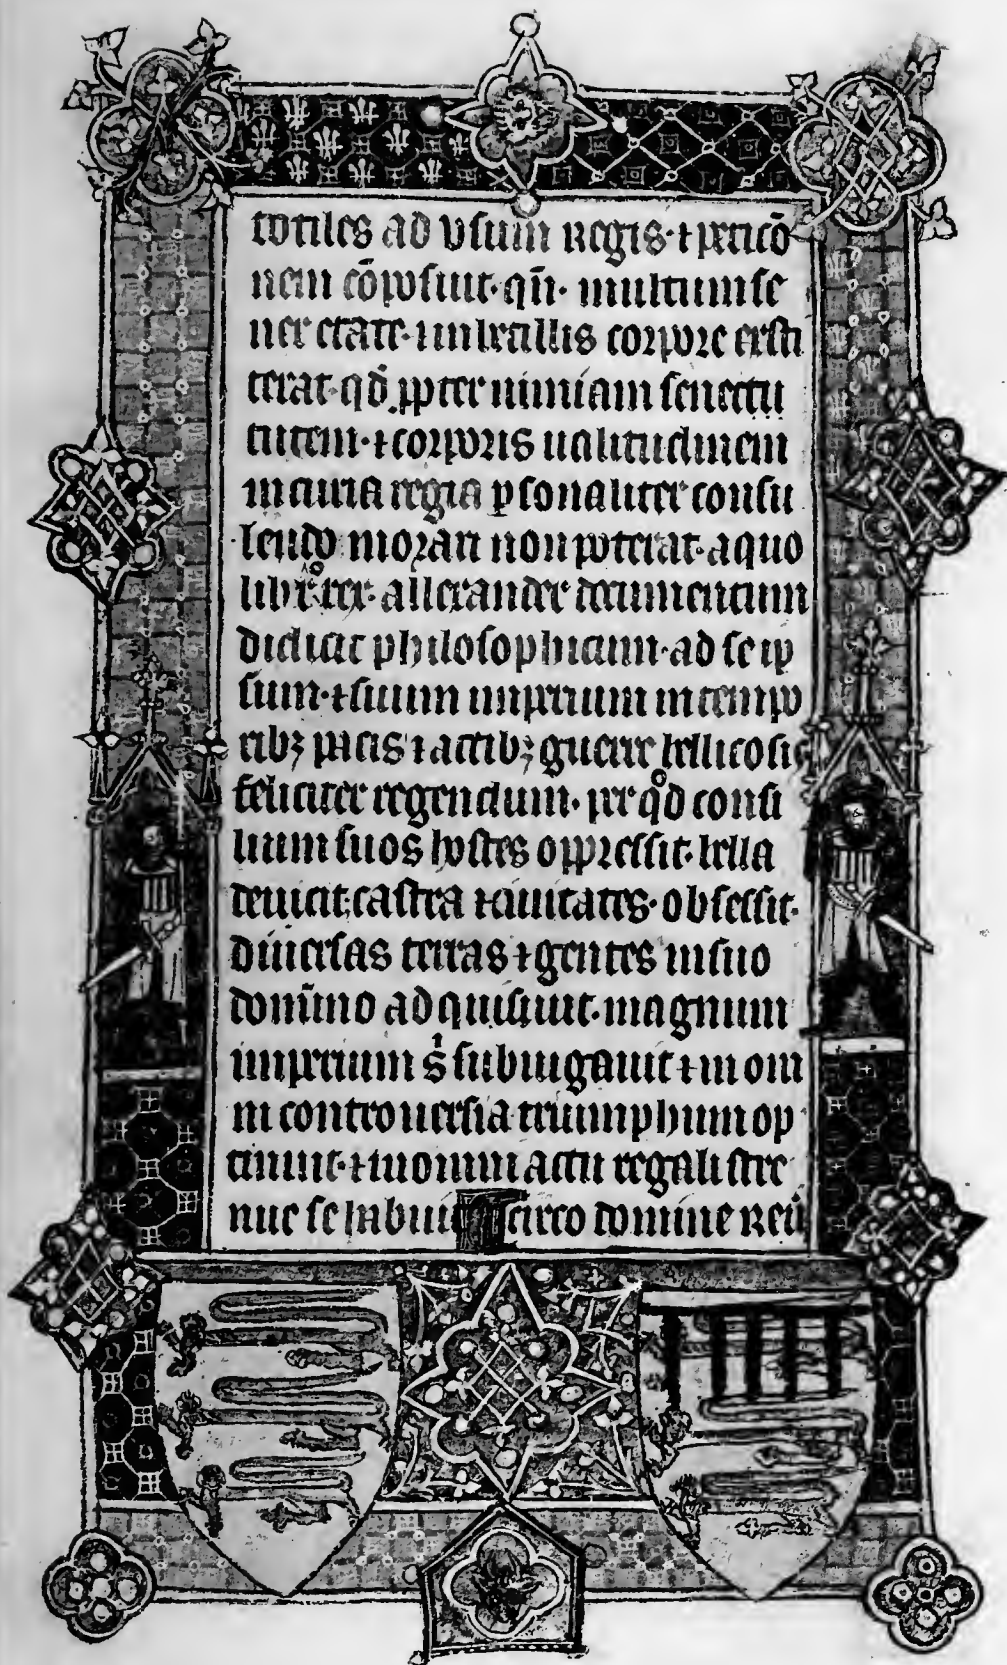 totiles ad vsum regis · ⁊ peticō
nem cōposuit · qn̄ · multum se
ner etate · imbecillis corpore exsti
terat · qd̄ ꝓpter nimiam senectu
tutem · ⁊ corporis ualitudinem
in curia regia ꝑsonaliter consu
lendo morari non poterat · a quo
libro rex · allexander documentum
didicit philosophicum · ad se ip
sum · ⁊ suum imperium in tempo
ribꝫ pacis ⁊ actibꝫ guerre bellicosis
feliciter regendum · per qd̊ consi
lium suos hostes oppressit · bella
deuicit castra ⁊ ciuitates · obsessit ·
diuersas terras ⁊ gentes in suo
domīno adquisiuit · magnum
imperium s̄ subiugauit ⁊ in om
ni controuersia triumphum op
tinuit · ⁊ in omni actu regali stre
nue se habuit icirco domine reū